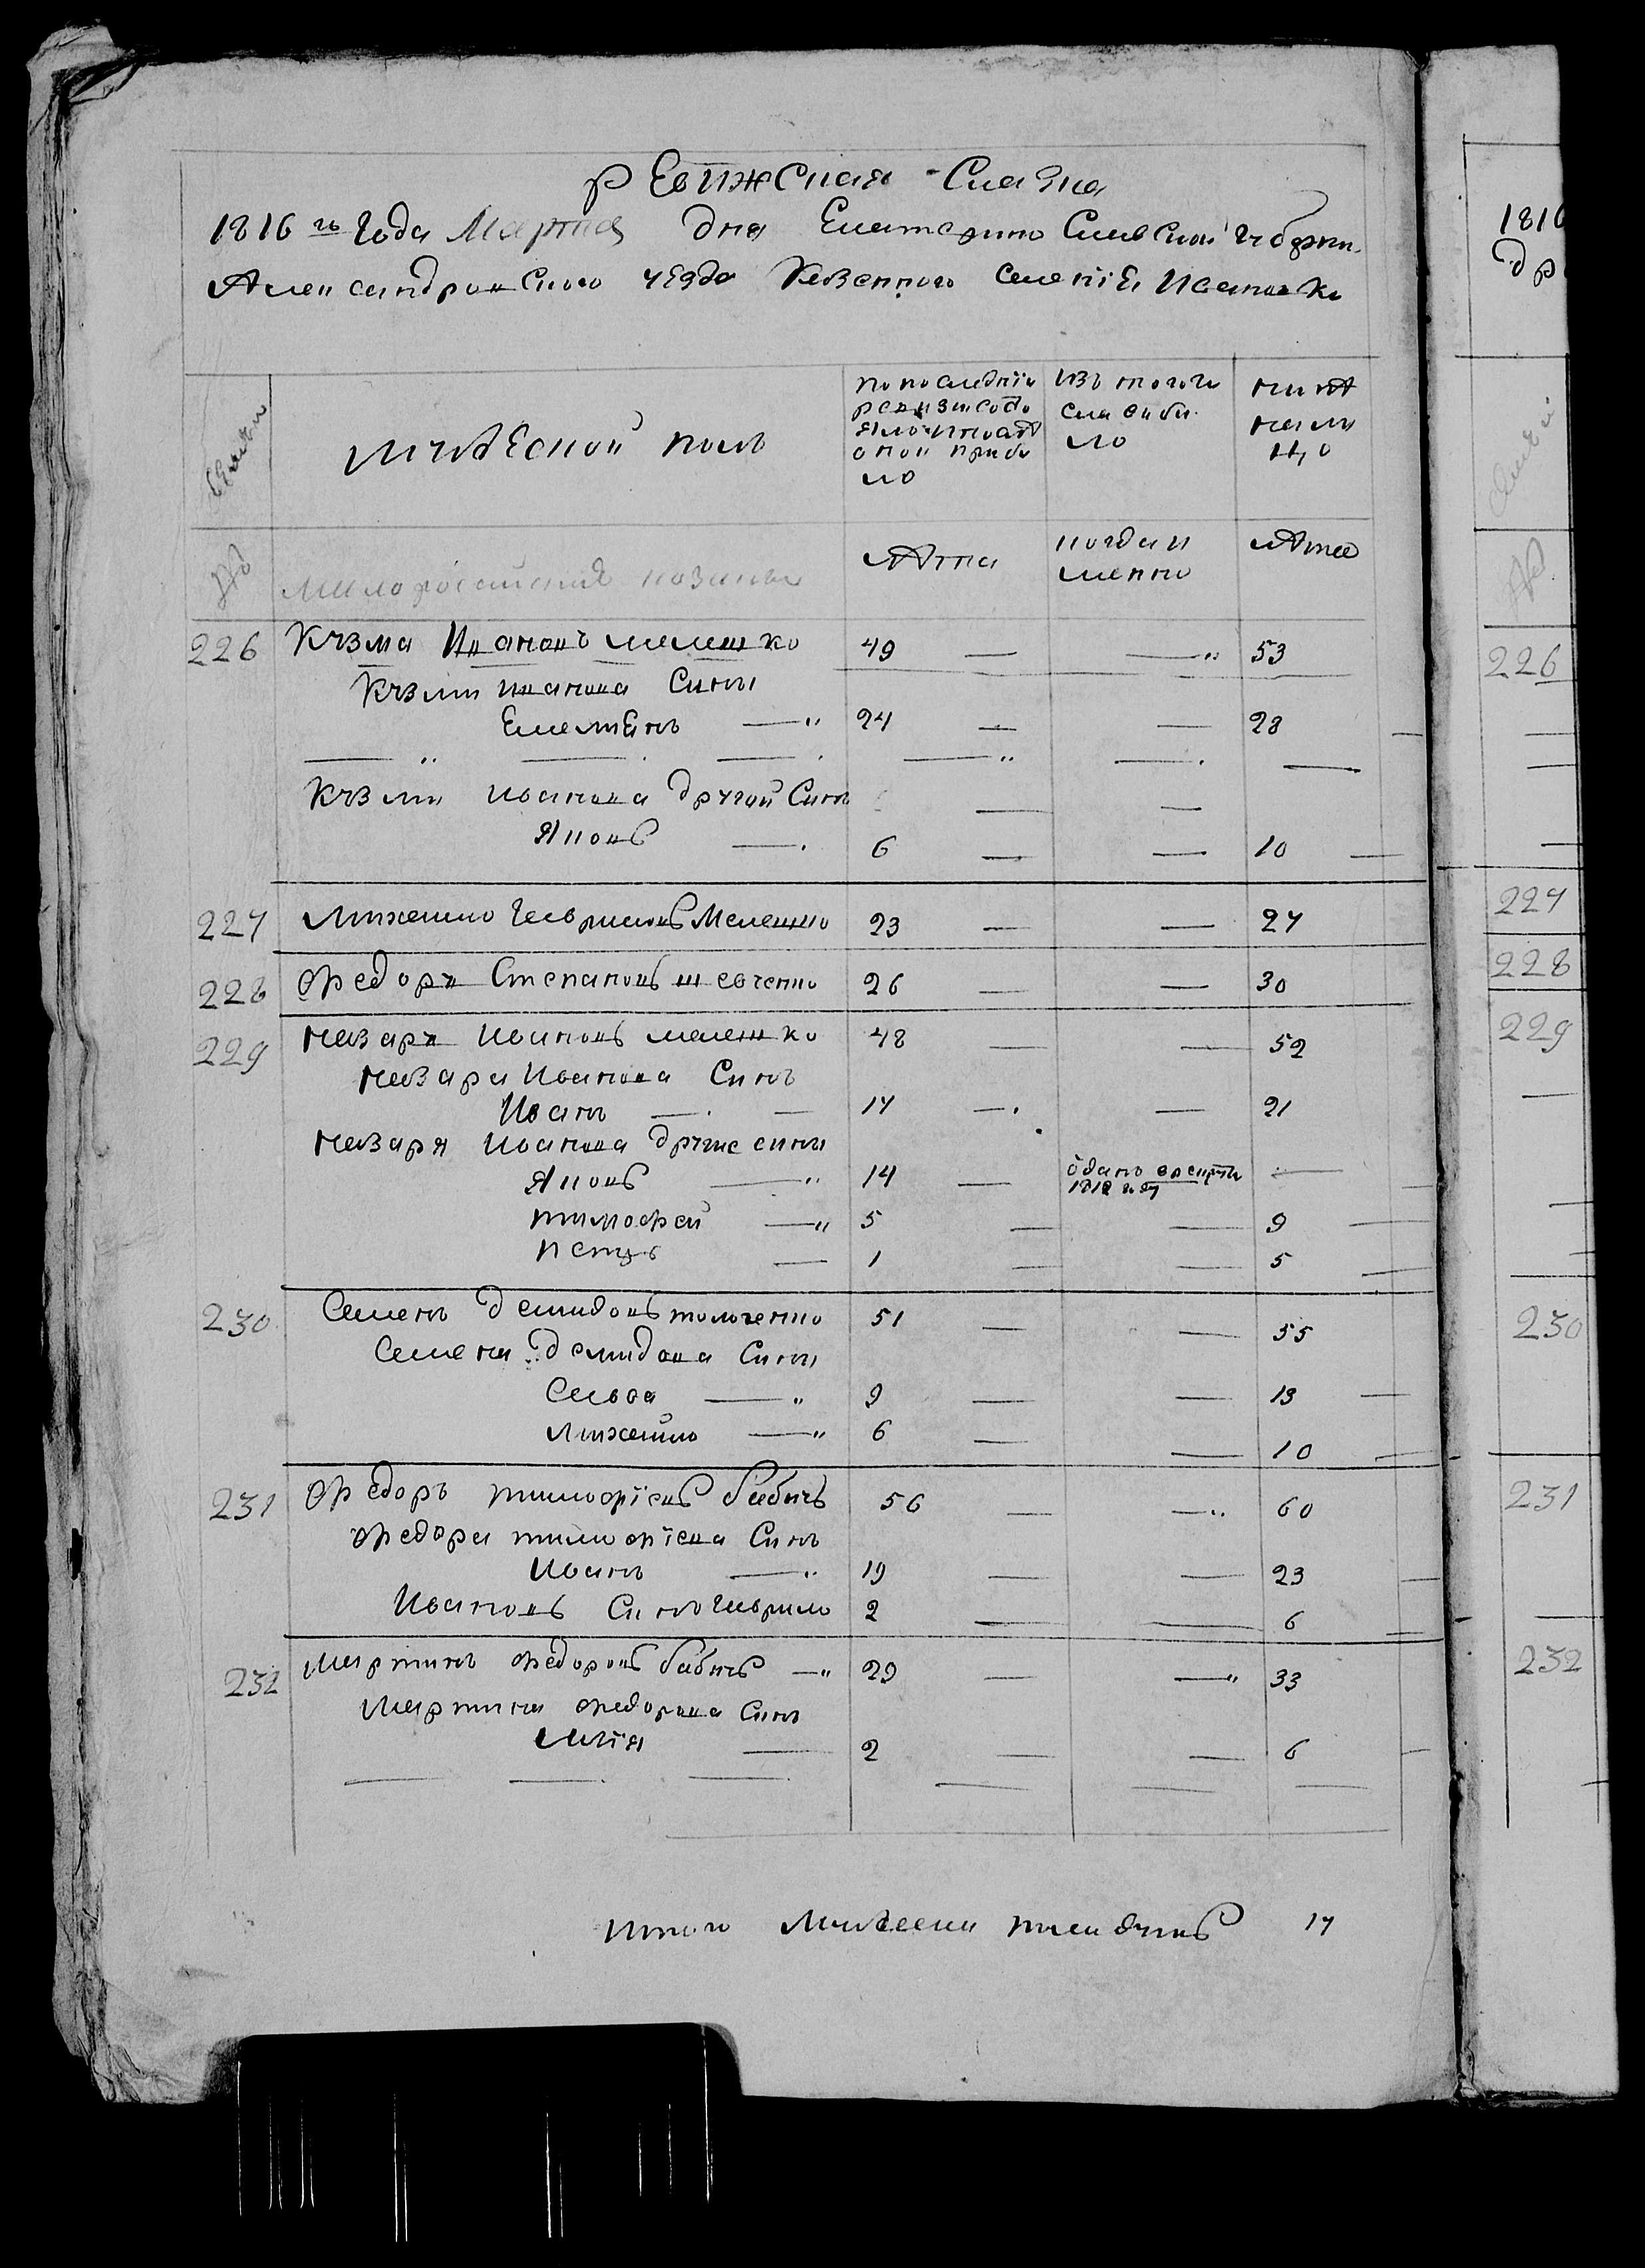 ревижская Сказка
1816 го Года Марта дня Екатерино Славской губерни
Александровского уезда Казенного Селения Ивановки
Семьи
мужеской полъ
по последней ревизи состояло и после оной прибыло
Изъ того числа выбыло
ныне налицо
№
Малороссийской названи
лета
когда именно
лета
226 Кузма Ивановъ мелешко 49 53
Кузми иванова Сины
Емелиенъ 24 28
Кузми иванова другой Синъ
Яковъ 6 10
227 Михайло Гавриловъ Мелешко 23 27
228 Федоръ Степановъ шевченко 26 30
229 Назаръ Ивановъ мелешко 48 52
Назара Иванова Синъ
Иванъ 17 21
Назаря Иванова другие сины
Яковъ 14 одданъ врекруты 1812 году
тимофей 5 9
Петръ 1 5
230 Семенъ Демидовъ толоченко 51 55
Семена Демидова Сины
Савва 9 13
Михайло 6 10
231 Федоръ тимофіевъ бабичъ 56 60
Федора тимофіева Синъ
Иванъ 19 23
Ивановъ Синъ Гаврило 2 6
232 Мартинъ Федоровъ бабичъ 29 33
Мартина Федорова Синъ
Илія 2 6
Итого Мужеска наличныхъ 17
1816
226
227
228
229
230
231
232